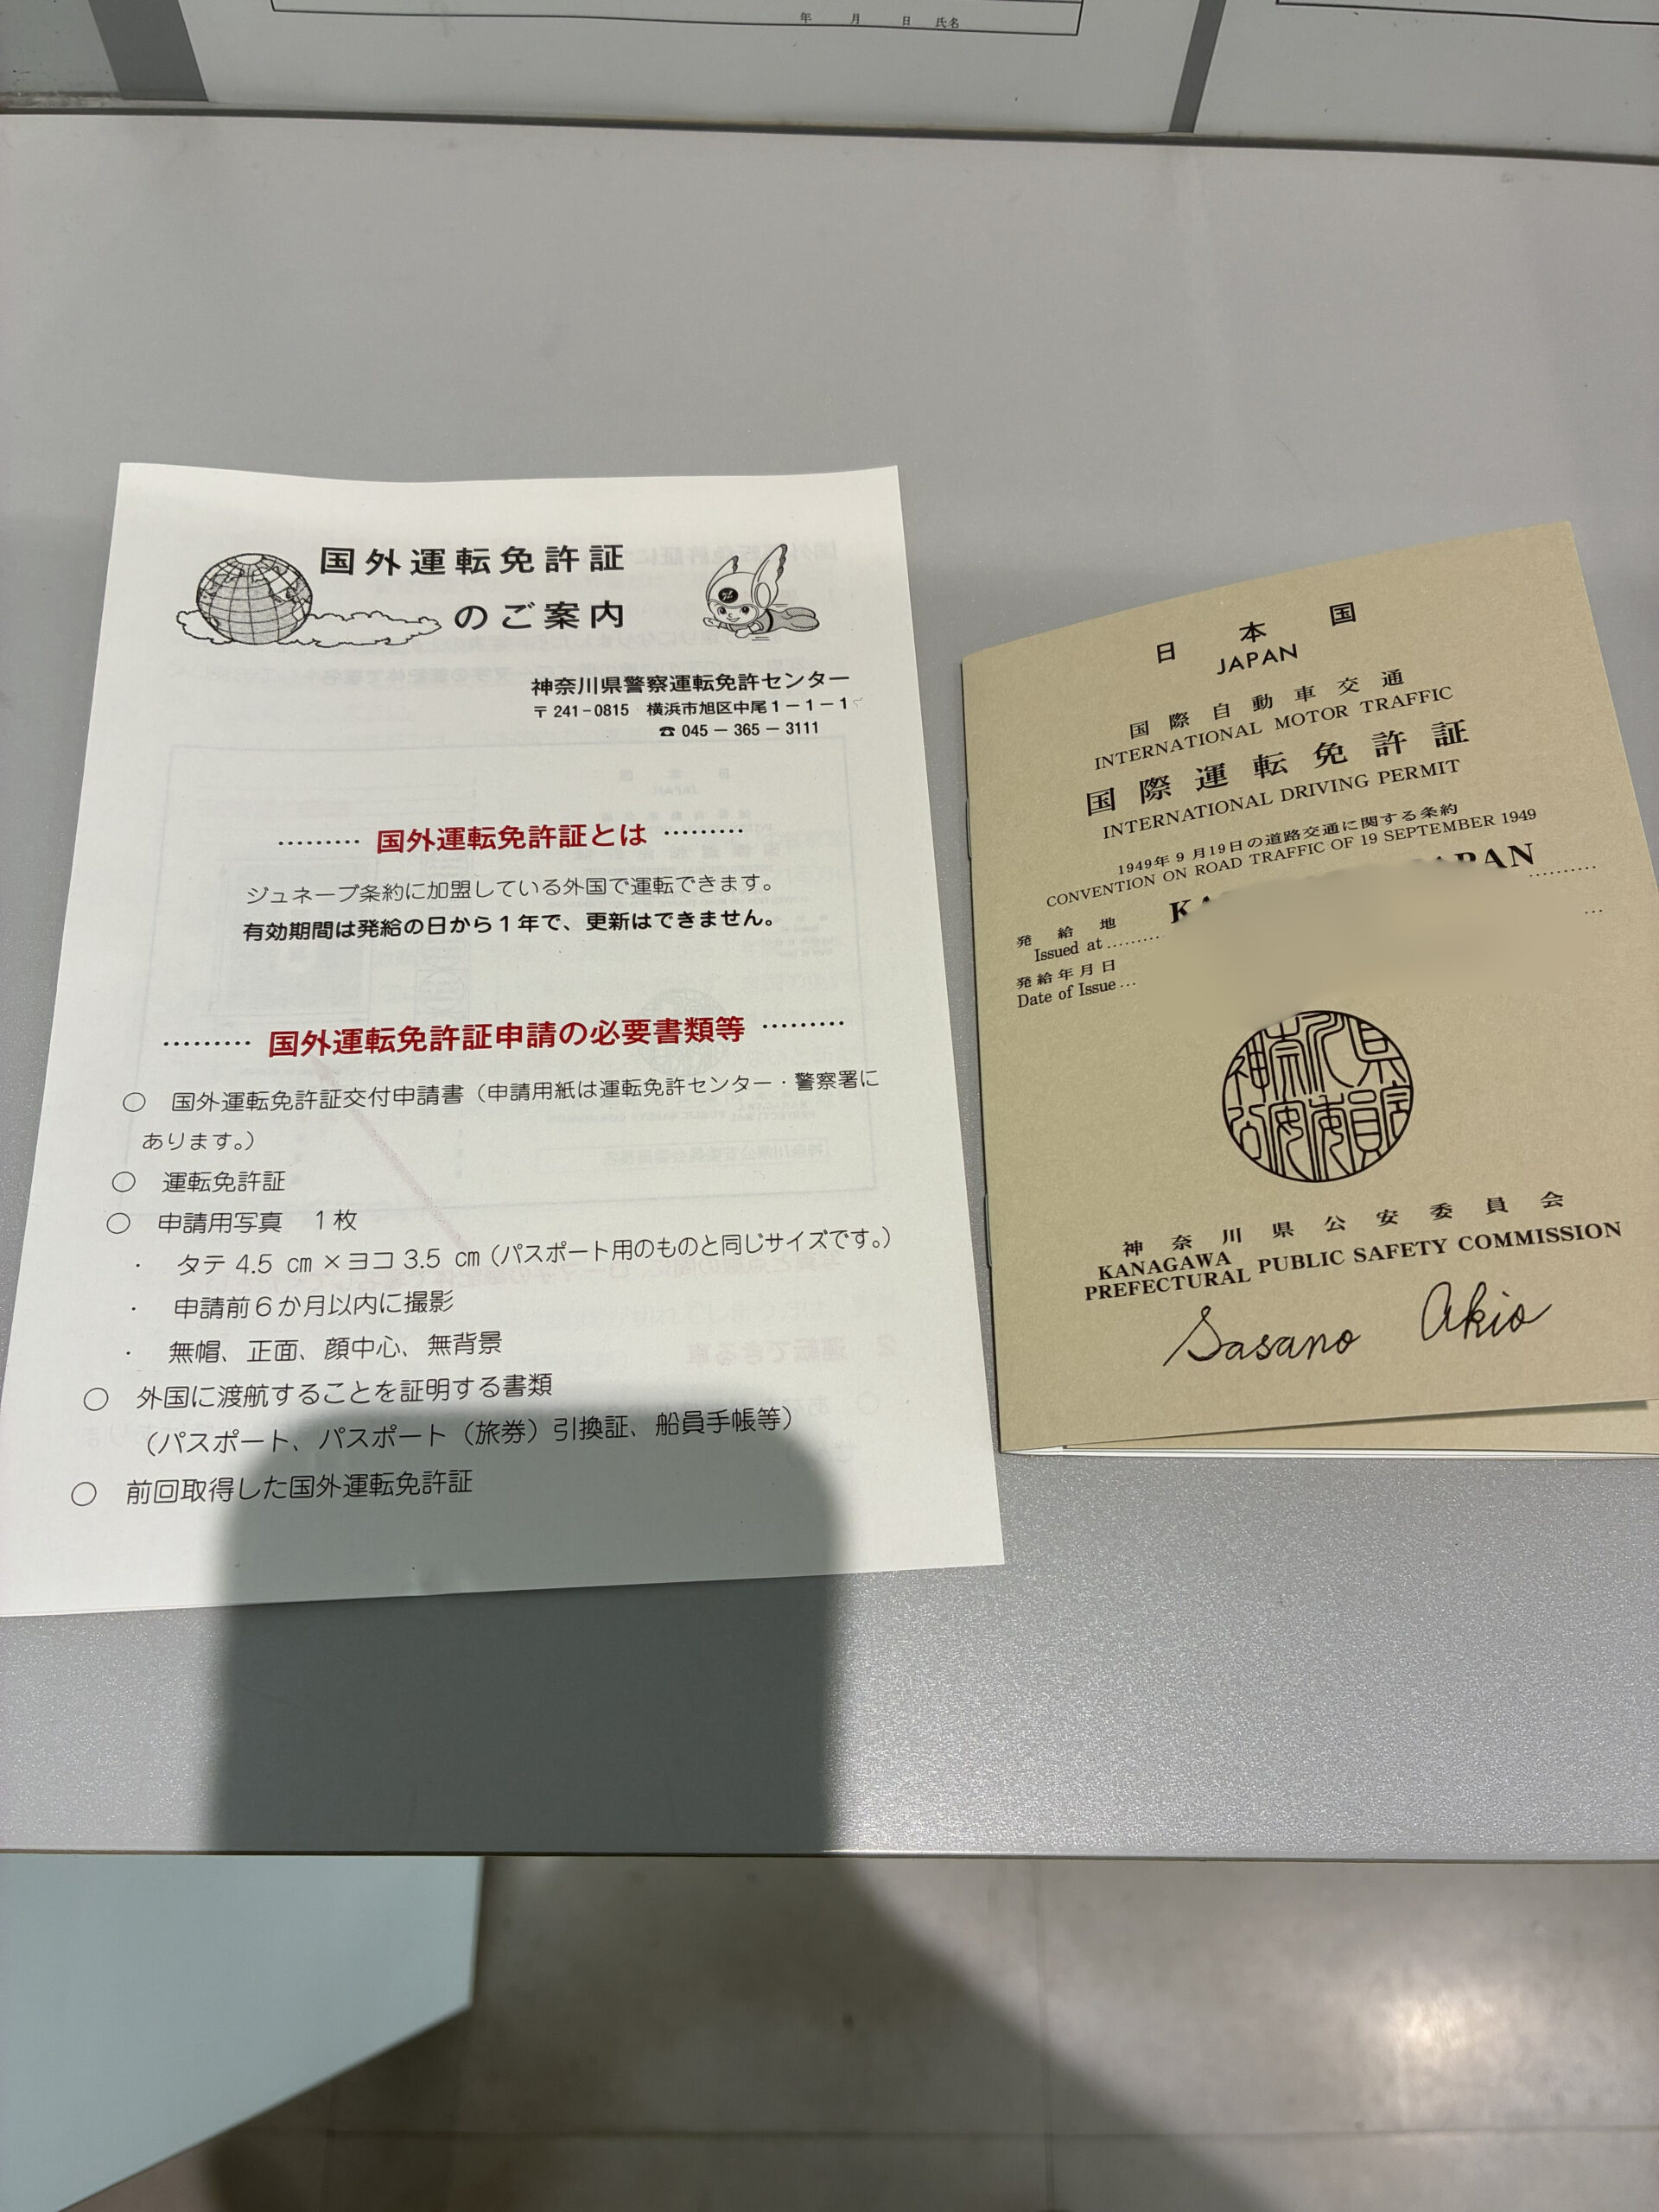 年 月 日 氏名
国外運転免許証
のご案内
神奈川県警察運転免許センター
〒241-0815 横浜市旭区中尾1-1-1
☎ 045-365-3111
……… 国外運転免許証とは ………
ジュネーブ条約に加盟している外国で運転できます。
有効期間は発給の日から1年で、更新はできません。
……… 国外運転免許証申請の必要書類等 ………
○ 国外運転免許証交付申請書（申請用紙は運転免許センター・警察署に
あります。）
○ 運転免許証
○ 申請用写真 1枚
・ タテ 4.5 cm×ヨコ 3.5 cm（パスポート用のものと同じサイズです。）
・ 申請前6か月以内に撮影
・ 無帽、正面、顔中心、無背景
○ 外国に渡航することを証明する書類
（パスポート、パスポート（旅券）引換証、船員手帳等）
○ 前回取得した国外運転免許証
日本国
JAPAN
国際自動車交通
INTERNATIONAL MOTOR TRAFFIC
国際運転免許証
INTERNATIONAL DRIVING PERMIT
1949年9月19日の道路交通に関する条約
CONVENTION ON ROAD TRAFFIC OF 19 SEPTEMBER 1949
発給地
Issued at
発給年月日
Date of Issue
神奈川県公安委員会
KANAGAWA
PREFECTURAL PUBLIC SAFETY COMMISSION
Sasano Akio